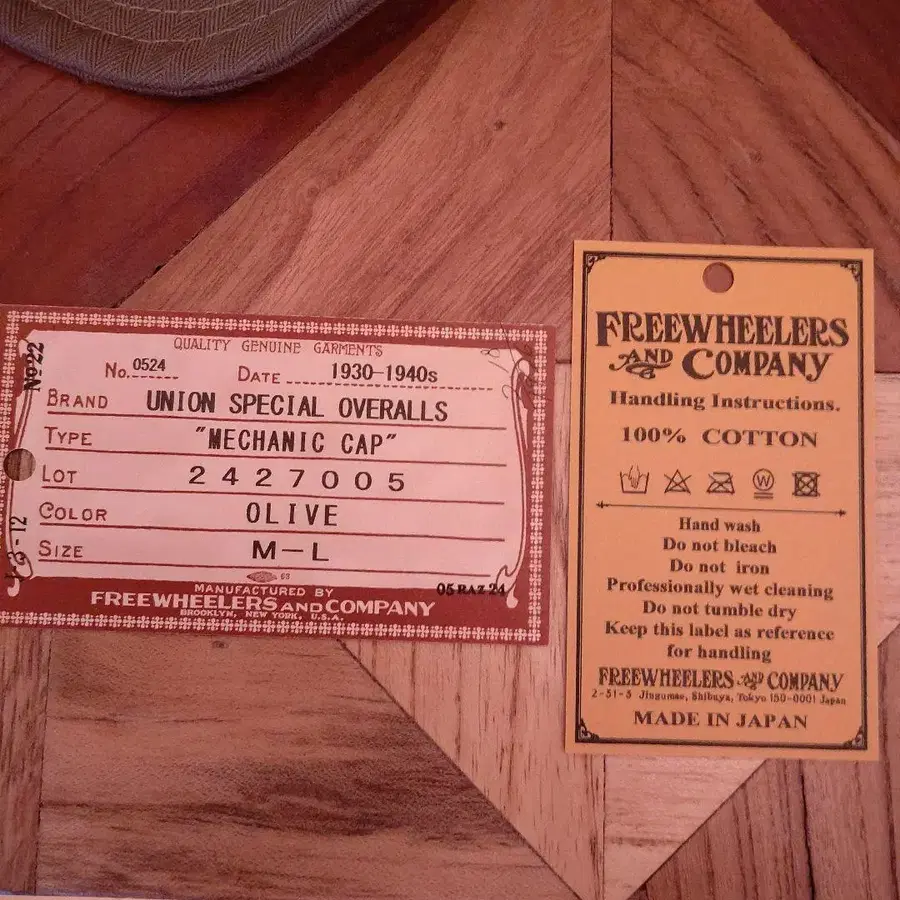 QUALITY GENUINE GARMENTS
No. 0524 DATE 1930-1940s
BRAND UNION SPECIAL OVERALLS
TYPE "MECHANIC CAP"
LOT 2427005
COLOR OLIVE
SIZE M-L
63
MANUFACTURED BY
FREEWHEELERS AND COMPANY
BROOKLYN, NEW YORK, U.S.A.
05 RAZ 24
No 22
FREEWHEELERS
AND COMPANY
Handling Instructions.
100% COTTON
W
Hand wash
Do not bleach
Do not iron
Professionally wet cleaning
Do not tumble dry
Keep this label as reference
for handling
FREEWHEELERS AND COMPANY
2-31-3 Jingumae, Shibuya, Tokyo 150-0001 Japan
MADE IN JAPAN